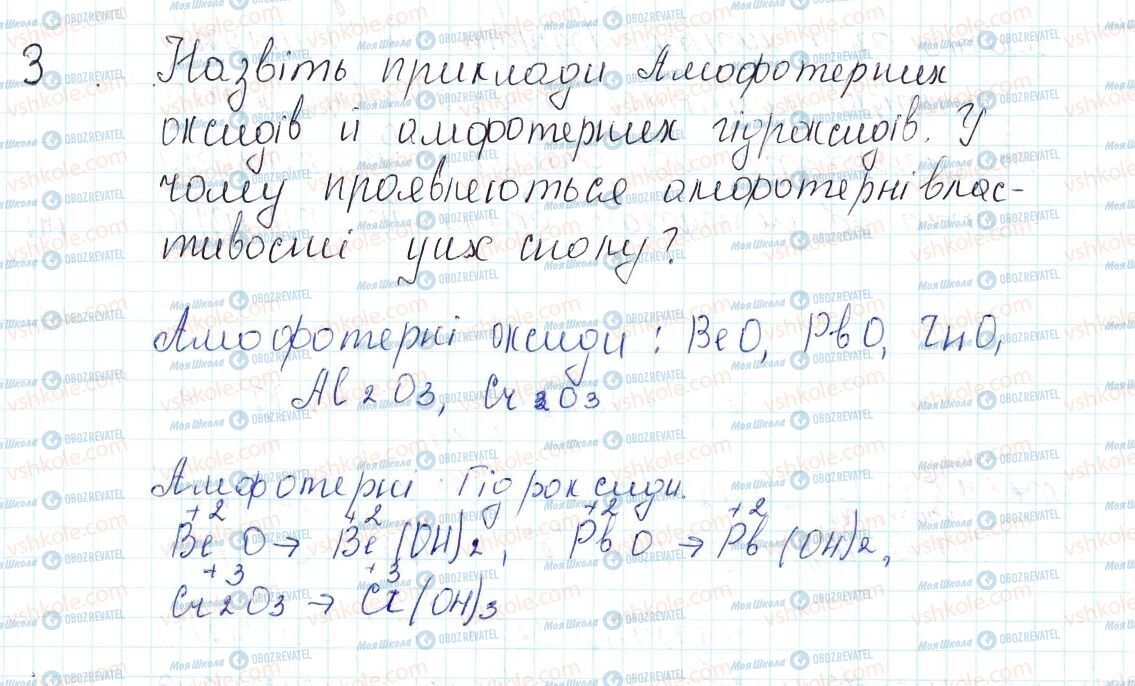 3. Назвіть приклади Амофотерних
оксидів й амфотерних гідроксидів. У
чому проявляються амфотерні влас-
тивості цих сполу?
Амофотерні оксиди: BeO, PbO, ZnO,
Al2O3, Cr2O3
Амфотерні Гідроксиди.
+2 +2 +2 +2
BeO → Be(OH)2, PbO → Pb(OH)2,
+3 +3
Cr2O3 → Cr(OH)3